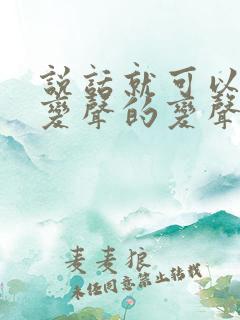 說話就可以
變聲的變聲
麦麦狼
未经同意禁止转载